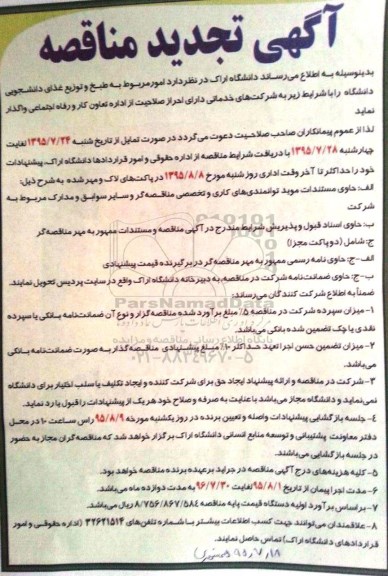 آگهی تجدید مناقصه
بدینوسیله به اطلاع می‌رساند دانشگاه اراک در نظر دارد امور مربوط به طبخ و توزیع غذای دانشجویی
دانشگاه را با شرایط زیر به شرکت‌های خدماتی دارای احراز صلاحیت از اداره تعاون کار و رفاه اجتماعی واگذار
نماید
لذا از عموم پیمانکاران صاحب صلاحیت دعوت می‌گردد در صورت تمایل از تاریخ شنبه ۱۳۹۵/۷/۲۴ لغایت
چهارشنبه ۱۳۹۵/۷/۲۸ با دریافت شرایط مناقصه از اداره حقوقی و امور قراردادها دانشگاه اراک، پیشنهادات
خود را حداکثر تا آخر وقت اداری روز شنبه مورخ ۱۳۹۵/۸/۸ در پاکت‌های لاک و مهر شده به شرح ذیل:
الف: حاوی مستندات موید توانمندی‌های کاری و تخصصی مناقصه‌گر و سایر سوابق و مدارک مربوط به
شرکت
ب: حاوی اسناد قبول و پذیرش شرایط مندرج در آگهی مناقصه و مستندات ممهور به مهر مناقصه‌گر
ج: شامل (دو پاکت مجزا)
الف-ج: حاوی نامه رسمی ممهور به مهر مناقصه گر در برگیرنده قیمت پیشنهادی
ب-ج: حاوی ضمانت‌نامه شرکت در مناقصه، به دبیرخانه دانشگاه اراک واقع در سایت پردیس تحویل نمایند.
ضمناً به اطلاع شرکت کنندگان می‌رساند:
۱- میزان سپرده شرکت در مناقصه ۵٪ مبلغ برآورد شده مناقصه گزار و نوع آن ضمانت‌نامه بانکی یا سپرده
نقدی یا چک تضمین شده بانکی می‌باشد.
۲- میزان تضمین حسن اجرا تعهد حداکثر ۱۰٪ مبلغ پیشنهادی مناقصه‌گذار به صورت ضمانت‌نامه بانکی
می‌باشد.
۳- شرکت در مناقصه و ارائه پیشنهاد ایجاد حق برای شرکت کننده و ایجاد تکلیف یا سلب اختیار برای دانشگاه
نمی‌نماید و دانشگاه مجاز می‌باشد با عنایت به صرفه و صلاح خود هر یک از پیشنهادات را قبول یا رد نماید.
۴- جلسه بازگشایی پیشنهادات واصله و تعیین برنده در روز یکشنبه مورخه ۹۵/۸/۹ راس ساعت ۱۰ در محل
دفتر معاونت پشتیبانی و توسعه منابع انسانی دانشگاه اراک برگزار خواهد شد که مناقصه گران مجاز به حضور
در جلسه بازگشایی می‌باشند.
۵- کلیه هزینه‌های درج آگهی مناقصه در جراید بر عهده برنده مناقصه خواهد بود.
۶- مدت اجرا پیمان از تاریخ ۹۵/۸/۱ لغایت ۹۶/۷/۳۰ به مدت دوازده ماه می‌باشد.
۷- بر اساس برآورد اولیه دستگاه قیمت پایه مناقصه ۸/۷۵۶/۸۶۷/۵۸۴ ریال می‌باشد.
۸- علاقمندان می‌توانند جهت کسب اطلاعات بیشتر با شماره تلفن‌های ۳۲۶۲۱۵۱۴ (اداره حقوقی و امور
قراردادهای دانشگاه اراک) تماس حاصل نمایند.
ParsNamadData
پایگاه اطلاع رسانی مناقصه و مزایده
۰۲۱-۸۸۳۴۹۶۷۰-۵